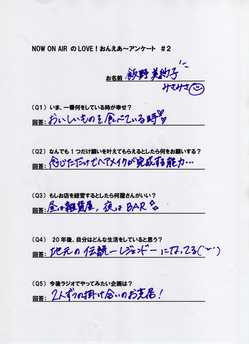 NOW ON AIR のLOVE!おんえあ～アンケート #2
お名前 飯野 美紗子
みさみさ
(Q1) いま、一番何をしている時が幸せ?
回答: おいしいものを食べている時
(Q2) なんでも1つだけ願いを叶えてもらえるとしたら何をお願いする?
回答: 念じただけでヘアメイクが完成する能力…
(Q3) もしお店を経営するとしたら何屋さんがいい?
回答: 昼は雑貨屋、夜はBAR
(Q4) 20年後、自分はどんな生活をしていると思う?
回答: 地元の伝説ーレジェンドーになってる
(Q5) 今後ラジオでやってみたい企画は?
回答: 2人ずつの掛け合いのお芝居!